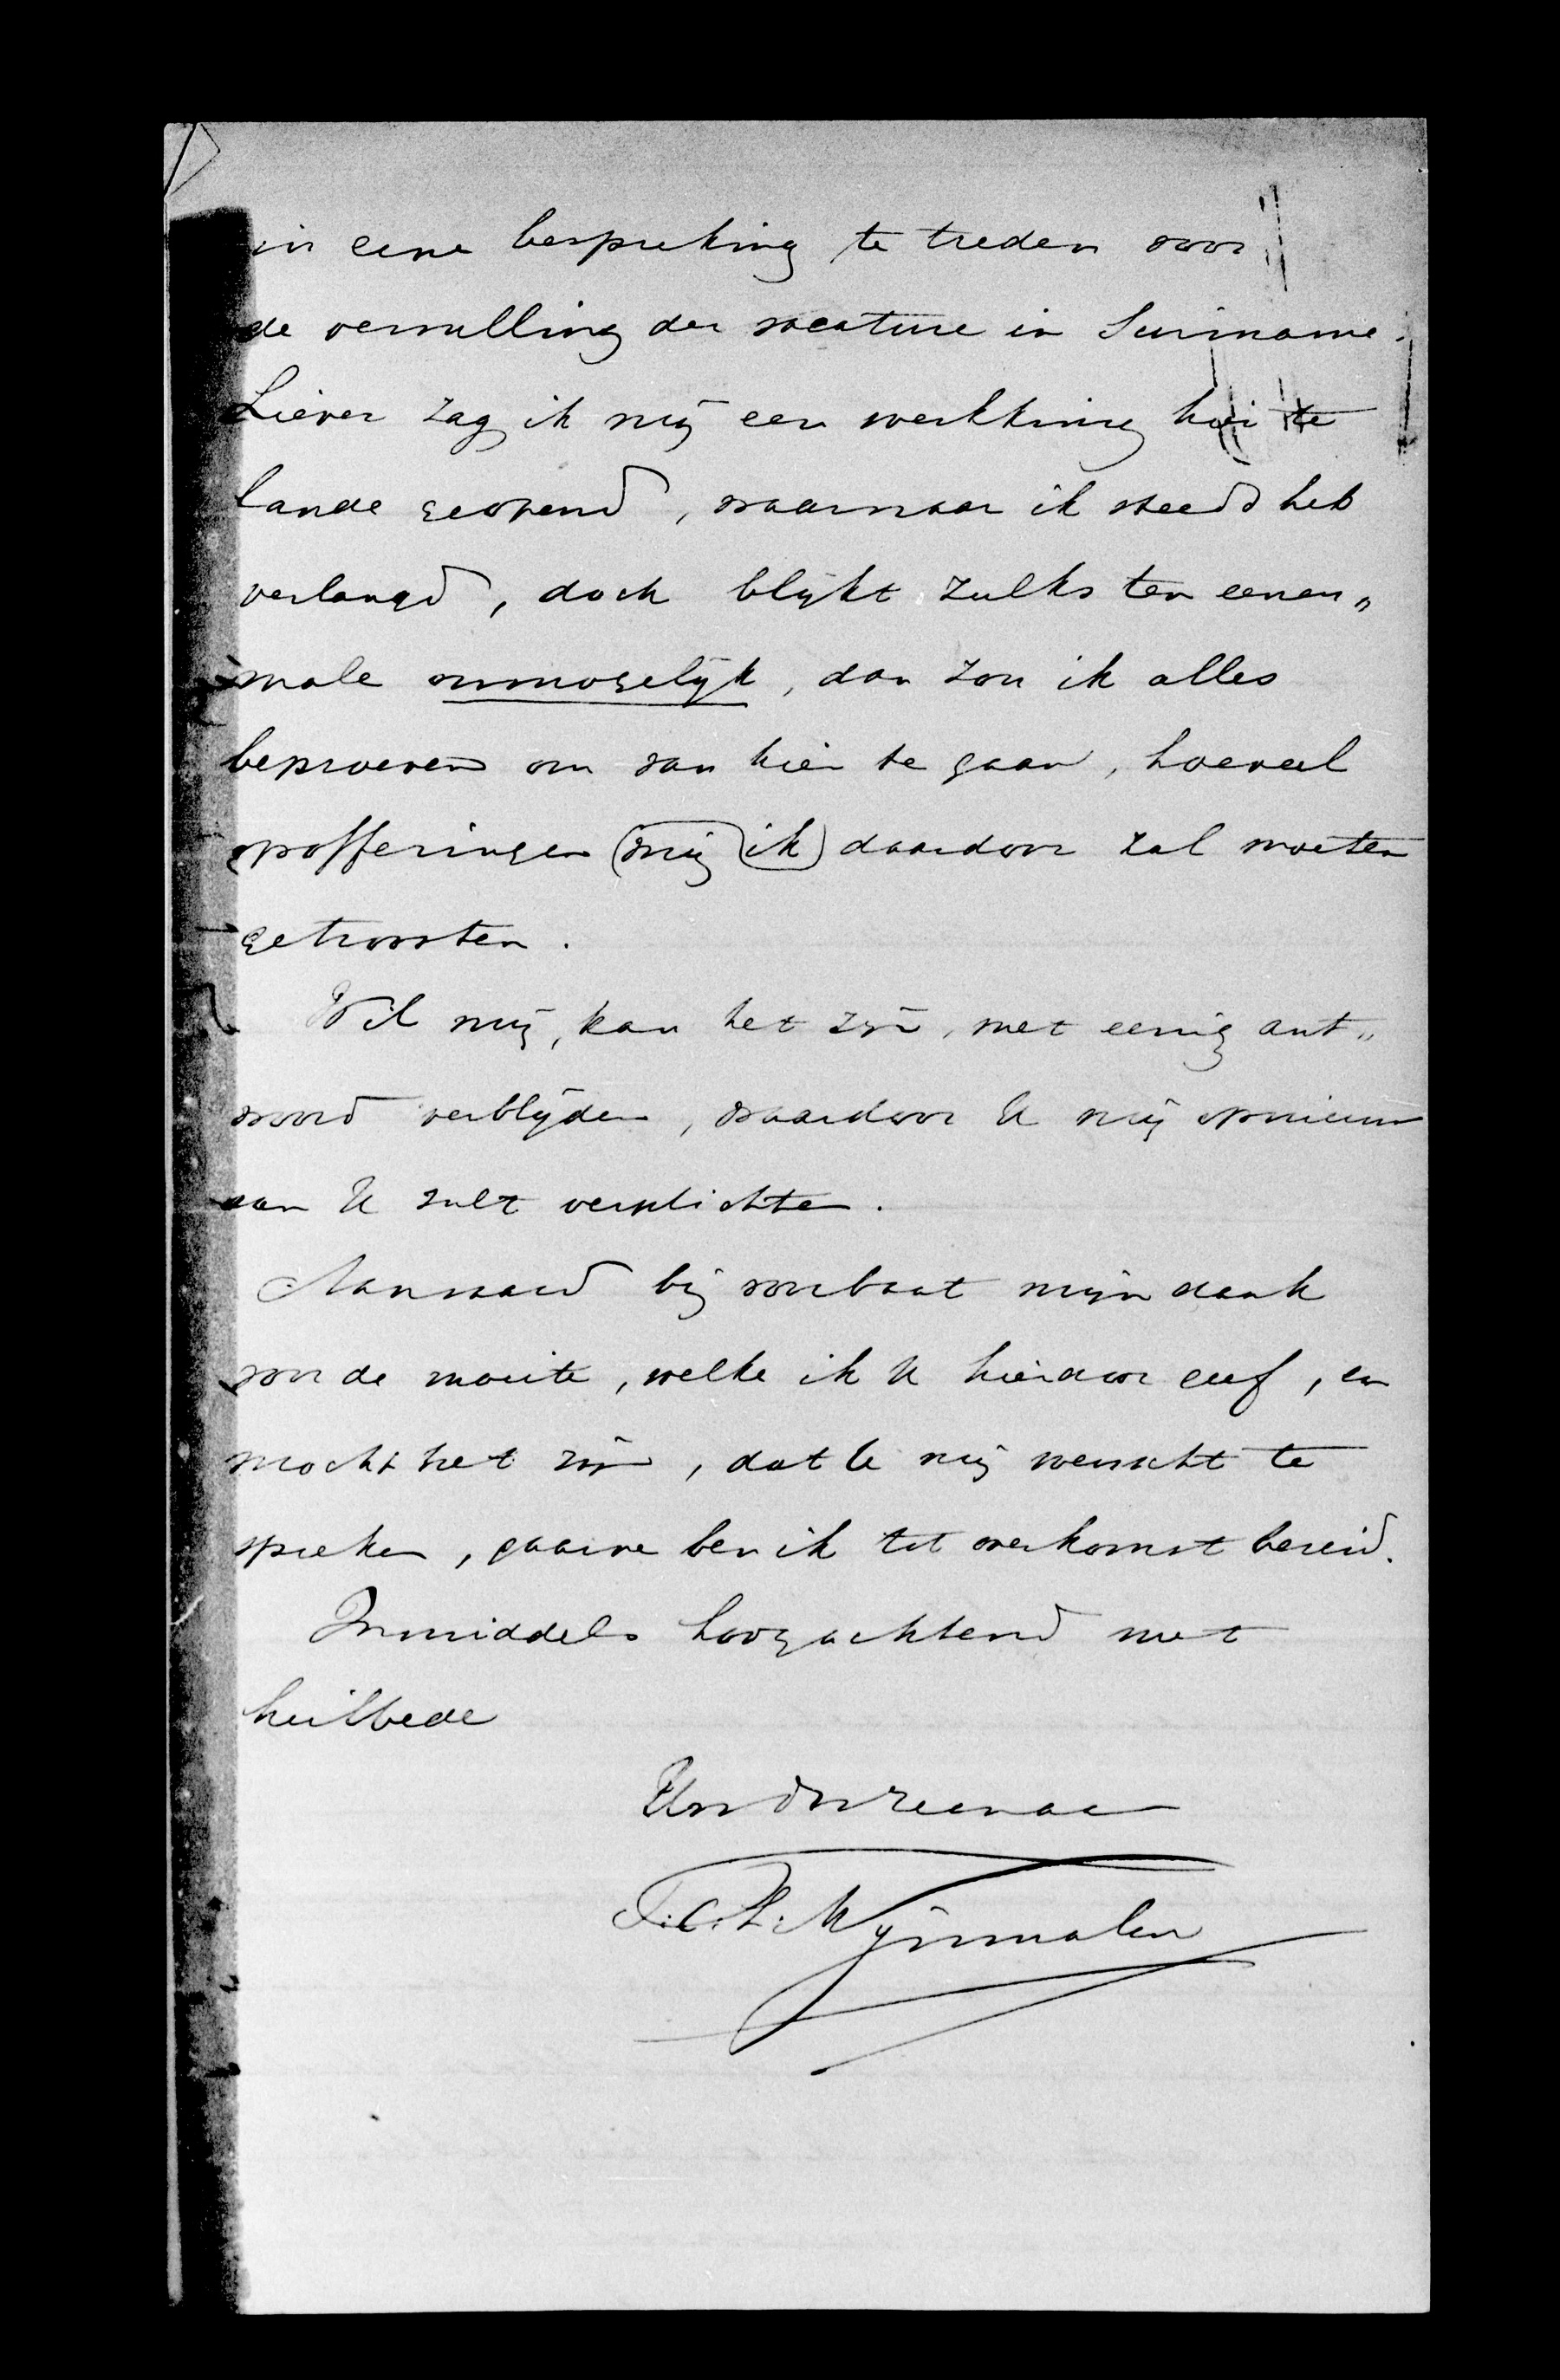 in eene bespreking te treden voor
de vervulling der vacature in Suriname.
Liever zag ik mij een werkkring hier te
lande geopend, waarnaar ik steeds heb
verlangd, doch blijkt zulks ten eenen„
male onmogelijk, dan zou ik alles
beproeven om van hier te gaan, hoeveel
opofferingen (mij (ik) daardoor zal moeten
getroosten.
Wil mij, kan het zijn, met eenig ant„
woord verblijden, waardoor U mij opnieuw
aan U zult verplichten.
Aanvaard bij voorbaat mijn dank
voor de moeite, welke ik U hierdoor geef, en
mocht het zijn, dat U mij wenscht te
spreken, gaarne ben ik tot overkomst bereid.
Inmiddels hoogachtend met
heilbede
Uw dw. dienaar
F. C. H. Wijnmalen